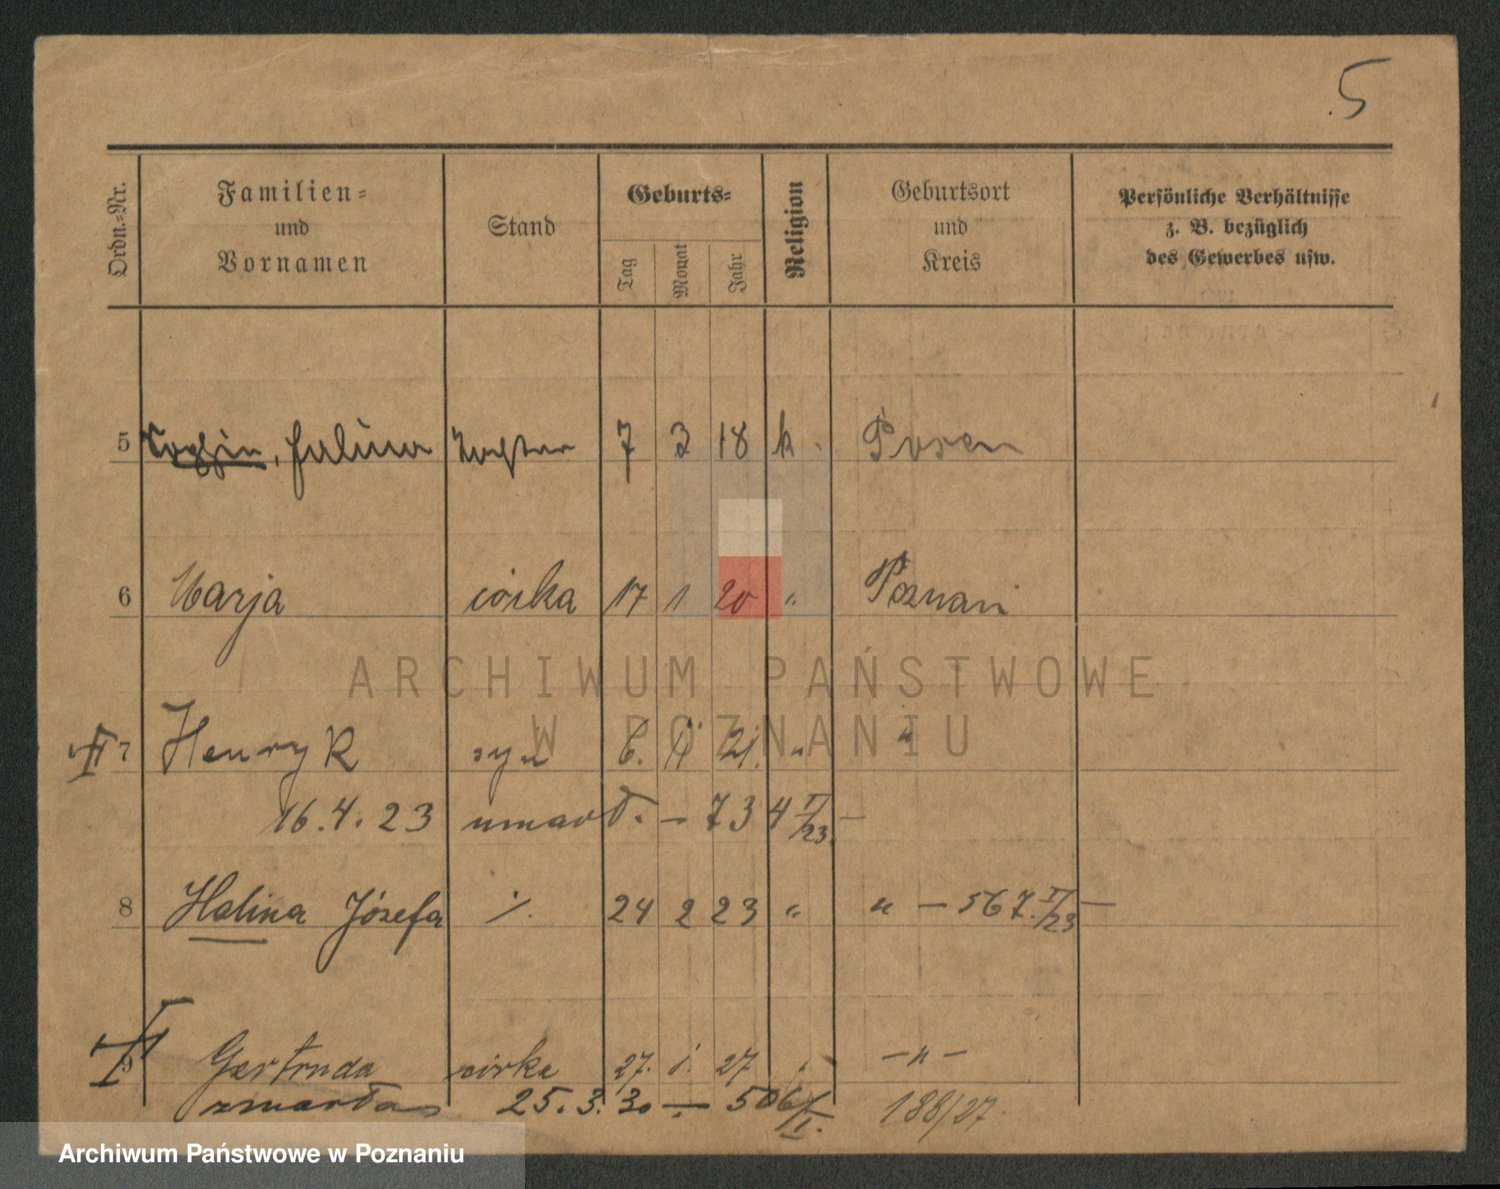 5
Ordn.-Nr.
Familien-
und
Vornamen
Stand
Geburts-
Tag
Monat
Jahr
Religion
Geburtsort
und
Kreis
Persönliche Verhältnisse
z. B. bezüglich
des Gewerbes usw.
5 Tochter 7 3 18 k. Posen
6 Marja córka 17 1 20 " Poznań
7 Henryk syn 6. 11 21. " "
16.4.23 umarł. — 734 I/23. —
8 Halina Józefa ·/. 24 2 23 " " — 567. I/23 —
9 Gertruda córka 27. 1. 27 — " —
zmarła 25.3.30 — 506/I. 188/27.
ARCHIWUM PAŃSTWOWE
W POZNANIU
Archiwum Państwowe w Poznaniu